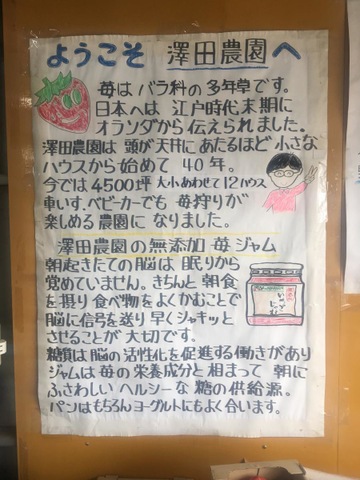 ようこそ 澤田農園へ
苺はバラ科の多年草です。
日本へは 江戸時代末期に
オランダから伝えられました。
澤田農園は 頭が天井にあたるほど小さな
ハウスから始めて 40年。
今では4500坪 大小あわせて12ハウス
車いす、ベビーカーでも 苺狩りが
楽しめる農園に なりました。
澤田農園の無添加 苺ジャム
朝起きたての脳は 眠りから
覚めていません。きちんと 朝食
を摂り 食べ物をよくかむことで
脳に信号を送り 早くシャキッと
させることが 大切です。
糖質は脳の活性化を促進する働きがあり
ジャムは 苺の栄養成分と相まって 朝に
ふさわしい ヘルシーな 糖の供給源。
パンはもちろんヨーグルトにもよく合います。